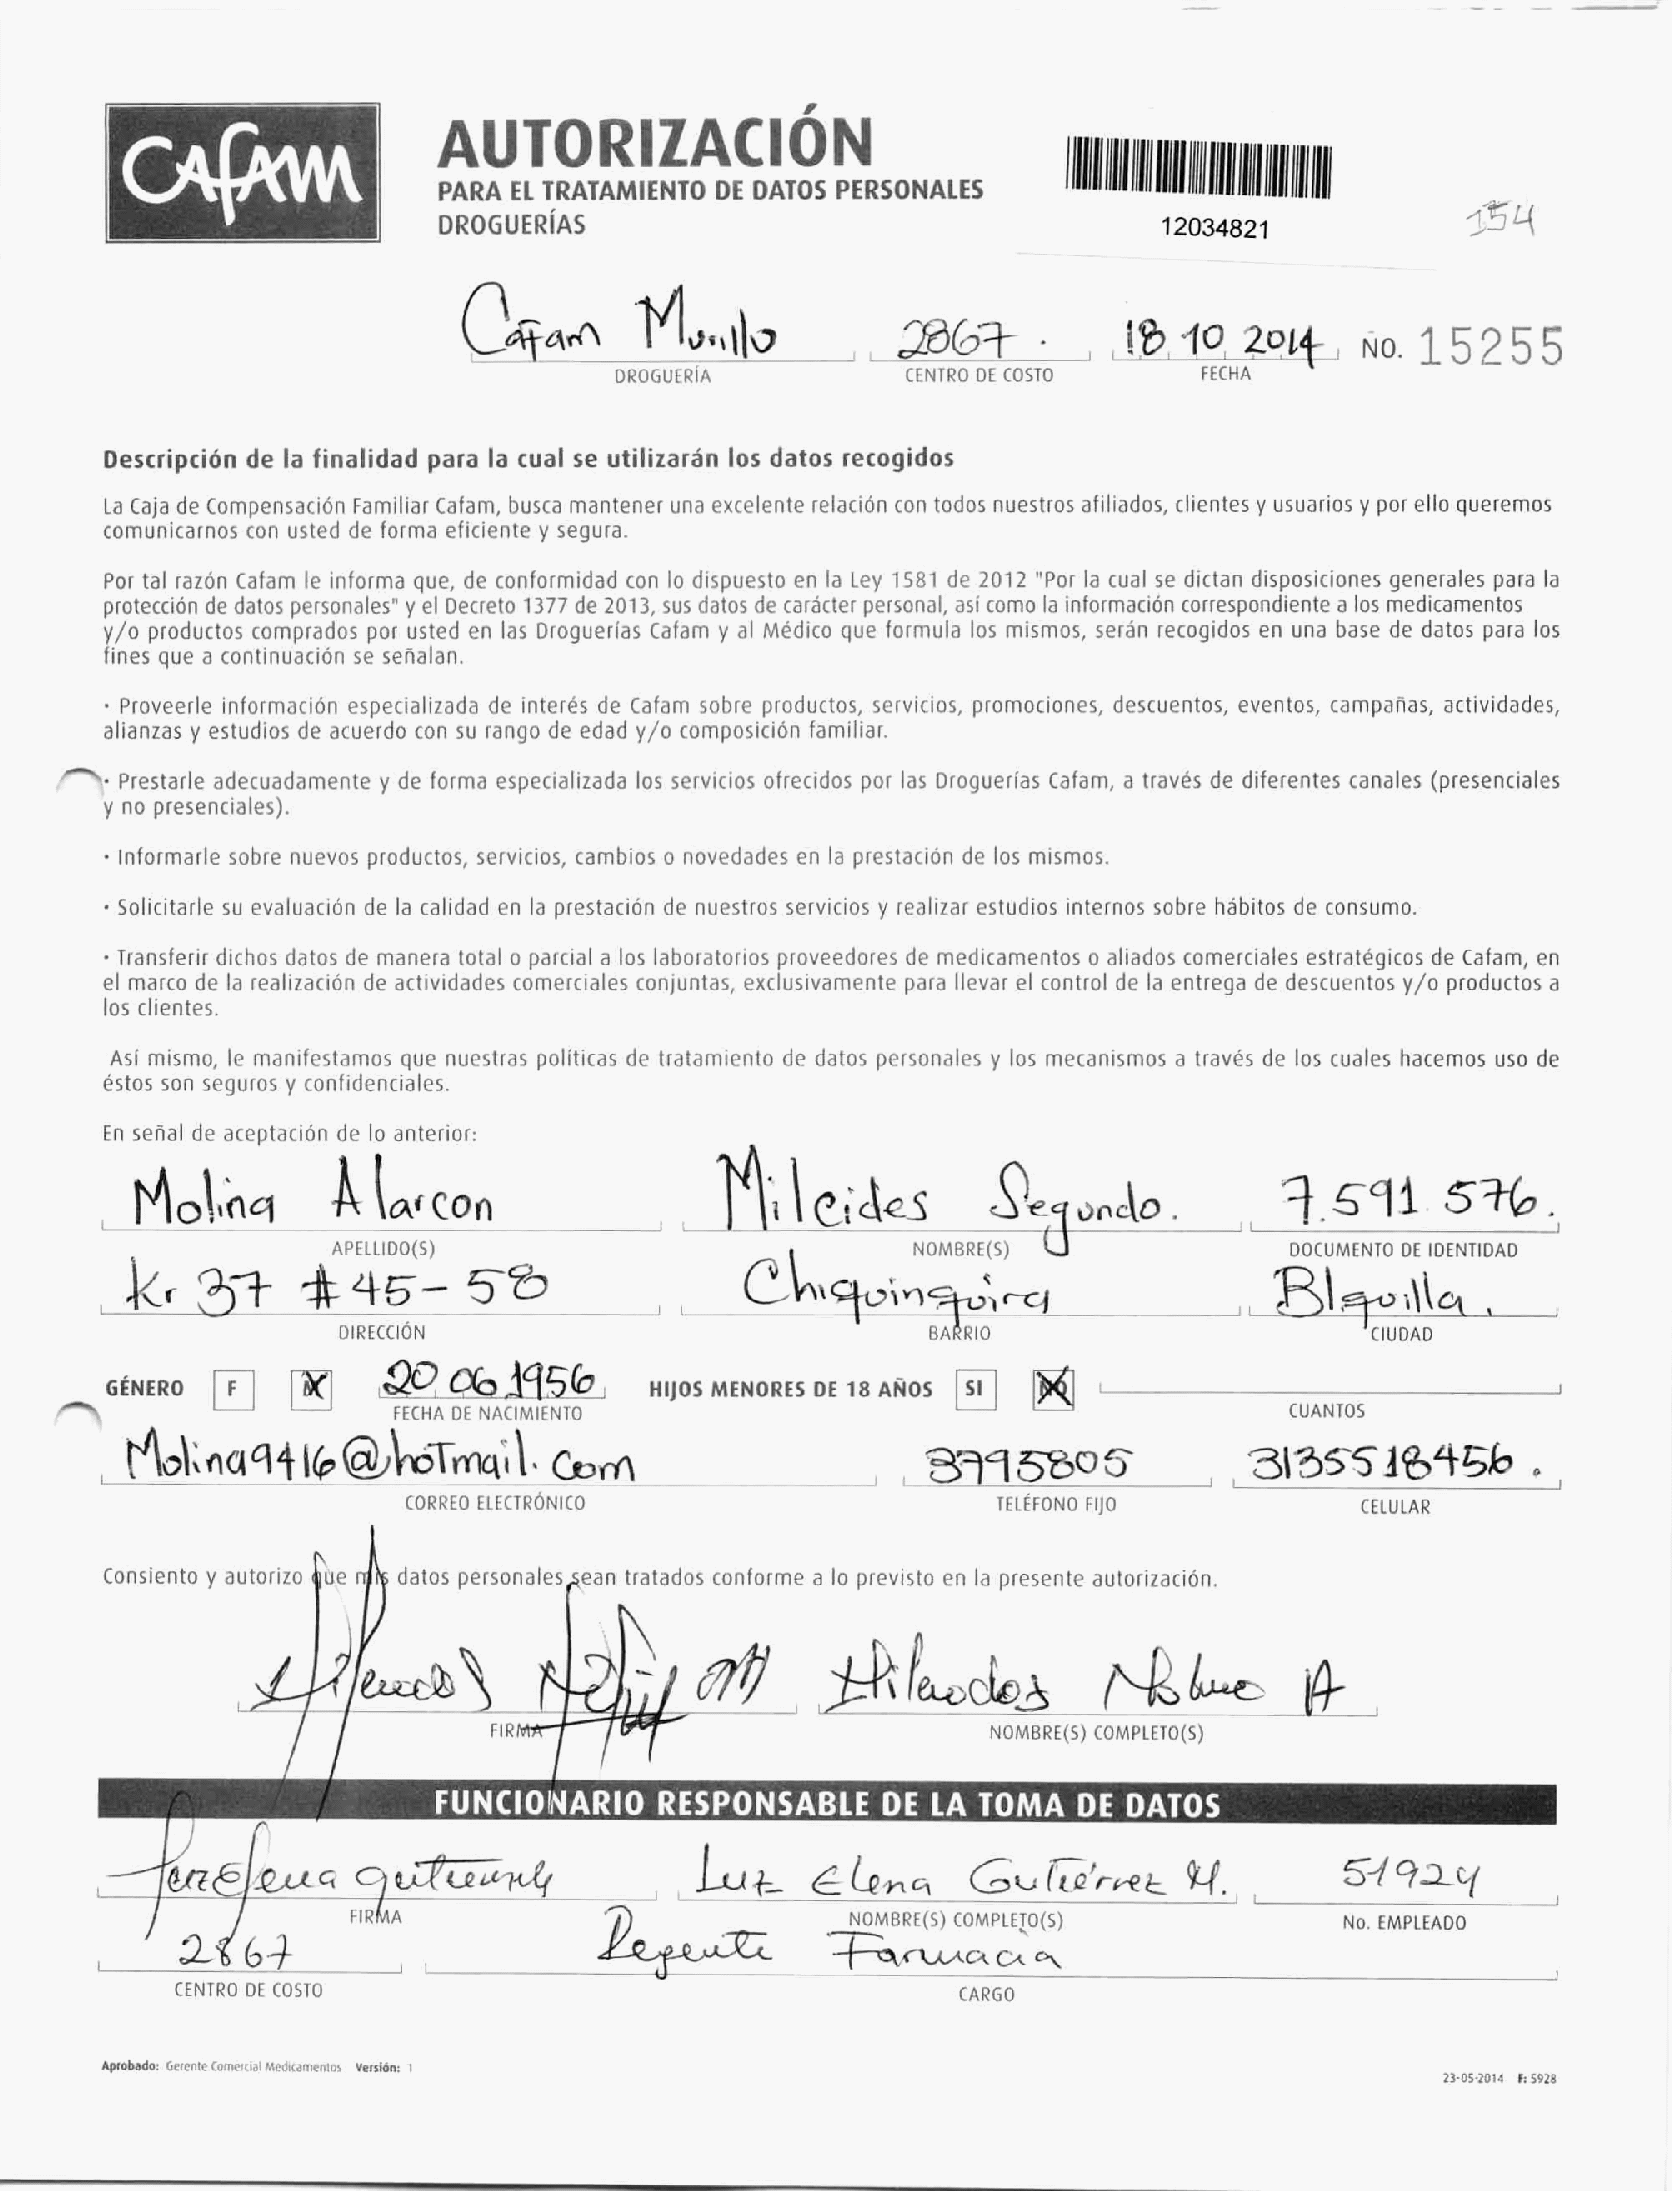 Cafam
AUTORIZACIÓN
PARA EL TRATAMIENTO DE DATOS PERSONALES
DROGUERÍAS
12034821
154
Cafam Murillo 2867. 18 10 2014 NO. 15255
DROGUERÍA CENTRO DE COSTO FECHA
Descripción de la finalidad para la cual se utilizarán los datos recogidos
La Caja de Compensación Familiar Cafam, busca mantener una excelente relación con todos nuestros afiliados, clientes y usuarios y por ello queremos
comunicarnos con usted de forma eficiente y segura.
Por tal razón Cafam le informa que, de conformidad con lo dispuesto en la Ley 1581 de 2012 "Por la cual se dictan disposiciones generales para la
protección de datos personales" y el Decreto 1377 de 2013, sus datos de carácter personal, así como la información correspondiente a los medicamentos
y/o productos comprados por usted en las Droguerías Cafam y al Médico que formula los mismos, serán recogidos en una base de datos para los
fines que a continuación se señalan.
· Proveerle información especializada de interés de Cafam sobre productos, servicios, promociones, descuentos, eventos, campañas, actividades,
alianzas y estudios de acuerdo con su rango de edad y/o composición familiar.
· Prestarle adecuadamente y de forma especializada los servicios ofrecidos por las Droguerías Cafam, a través de diferentes canales (presenciales
y no presenciales).
· Informarle sobre nuevos productos, servicios, cambios o novedades en la prestación de los mismos.
· Solicitarle su evaluación de la calidad en la prestación de nuestros servicios y realizar estudios internos sobre hábitos de consumo.
· Transferir dichos datos de manera total o parcial a los laboratorios proveedores de medicamentos o aliados comerciales estratégicos de Cafam, en
el marco de la realización de actividades comerciales conjuntas, exclusivamente para llevar el control de la entrega de descuentos y/o productos a
los clientes.
Así mismo, le manifestamos que nuestras políticas de tratamiento de datos personales y los mecanismos a través de los cuales hacemos uso de
éstos son seguros y confidenciales.
En señal de aceptación de lo anterior:
Molina Alarcon Milcides Segundo. 7.591.576.
APELLIDO(S) NOMBRE(S) DOCUMENTO DE IDENTIDAD
Kr 37 #45-58 Chiquinquira Blquilla.
DIRECCIÓN BARRIO CIUDAD
GÉNERO F M 20 06 1956 HIJOS MENORES DE 18 AÑOS SI NO
FECHA DE NACIMIENTO CUANTOS
Molina9416@hotmail.com 3795805 3135518456.
CORREO ELECTRÓNICO TELÉFONO FIJO CELULAR
Consiento y autorizo que mis datos personales sean tratados conforme a lo previsto en la presente autorización.
FIRMA NOMBRE(S) COMPLETO(S)
FUNCIONARIO RESPONSABLE DE LA TOMA DE DATOS
Luz Elena Gutiérrez M. 51924
FIRMA NOMBRE(S) COMPLETO(S) No. EMPLEADO
2867 Regente Farmacia
CENTRO DE COSTO CARGO
Aprobado: Gerente Comercial Medicamentos Versión: 1
23-05-2014 F: 5928